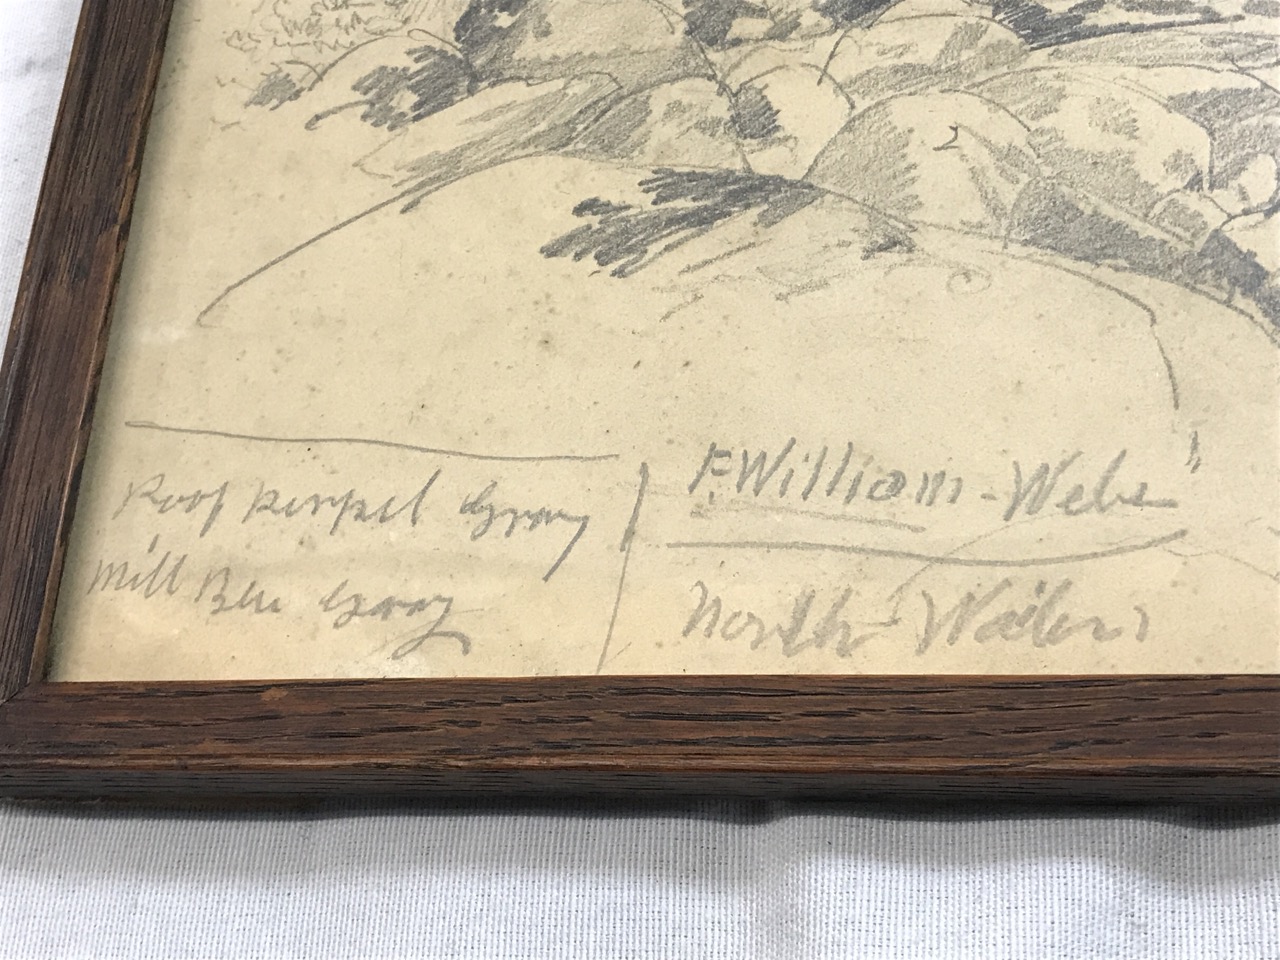 Roof purpel Gray
Mill Blu Gray
F. William-Webe
North Wales